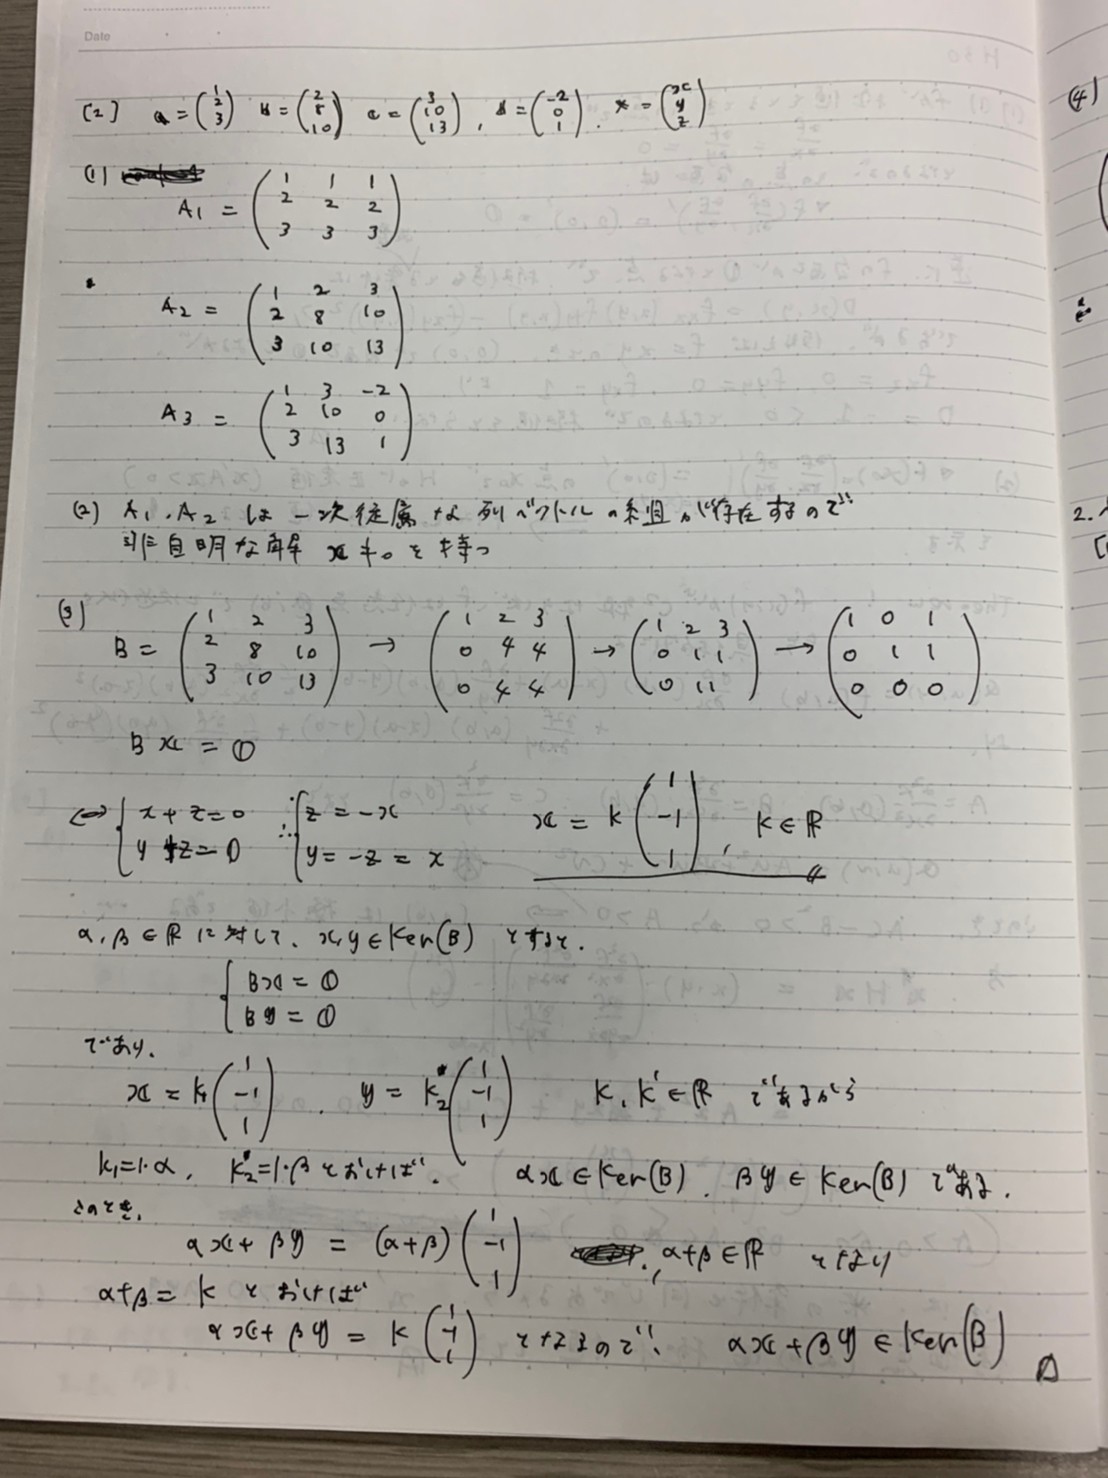 Date
[2] a = (1 2 3) b = (2 8 10) c = (3 10 13), d = (-2 0 1). x = (x y z)
(4)
(1)
A1 = (1 1 1
2 2 2
3 3 3)
A2 = (1 2 3
2 8 10
3 10 13)
A3 = (1 3 -2
2 10 0
3 13 1)
(2) A1, A2 は 一次従属な列ベクトルの組が存在するので
非自明な解 x ≠ 0 を持つ
2.
(3)
B = (1 2 3
2 8 10
3 10 13) → (1 2 3
0 4 4
0 4 4) → (1 2 3
0 1 1
0 1 1) → (1 0 1
0 1 1
0 0 0)
Bx = 0
⇔ { x + z = 0
y + z = 0 ∴ { z = -x
y = -z = x x = k (1 -1 1), k ∈ R
α, β ∈ R に対して、x, y ∈ Ker(B) とすると、
{ Bx = 0
By = 0
であり、
x = k1 (1 -1 1). y = k2 (1 -1 1) k, k' ∈ R であるから
k1 = 1·α, k2 = 1·β とおけば、 αx ∈ Ker(B). βy ∈ Ker(B) である.
このとき、
αx + βy = (α+β) (1 -1 1) , α+β ∈ R となり
α+β = k とおけば
αx + βy = k (1 -1 1) となるので、 αx + βy ∈ Ker(B)